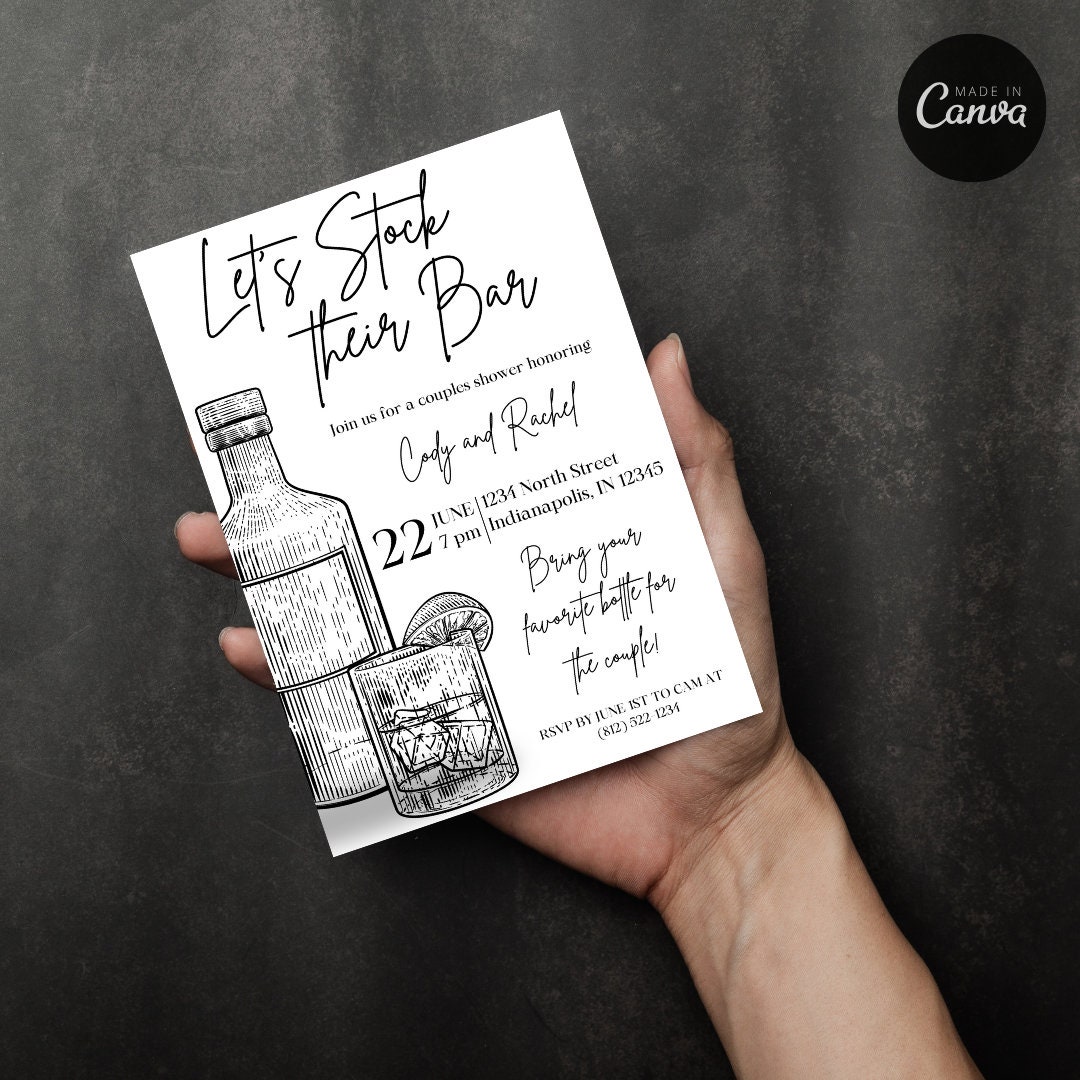 MADE IN
Canva
Let's Stock
their Bar
Join us for a couples shower honoring
Cody and Rachel
22
JUNE
7 pm
1234 North Street
Indianapolis, IN 12345
Bring your
favorite bottle for
the couple!
RSVP BY JUNE 1ST TO CAM AT
(812) 522-1234